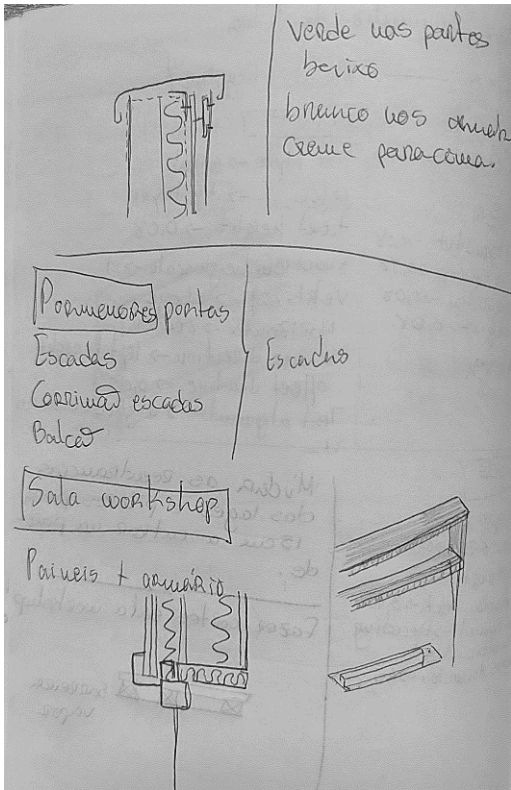 verde nas partes
baixo
branco nos
creme para cima.
Pormenores portas
Escadas
Corrimão escadas
Balcão
Escadas
Sala workshop
Paineis + armário